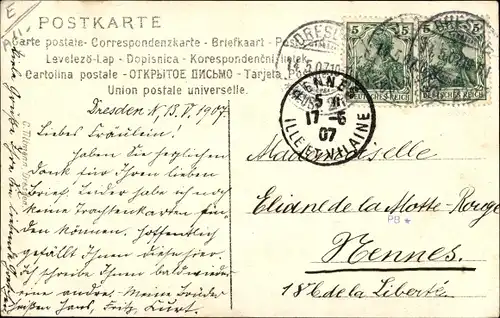 POSTKARTE
Carte postale - Correspondenzkarte - Briefkaart -
Levelező-Lap - Dopisnica - Korespondenční lístek
Cartolina postale - ОТКРЫТОЕ ПИСЬМО - Tarjeta
Union postale universelle.
DEUTSCHES REICH
5 5 5
RENNES
17-6
07
ILLE ET VILAINE
Dresden N, 13. V. 1907.
Liebes Fräulein!
Haben Sie herzlichen
Dank für Ihren lieben
Brief. Leider habe ich
keine Trachtenkarten fin-
den können. Hoffentlich
gefällt Ihnen diese hier.
Ich schreibe Ihnen baldwieder
eine andre. Meine Brüder
heißen Hans, Fritz, Kurt.
Mademoiselle
Eliane de la Motte-Rouge
PB *
Rennes.
18 de la Liberté